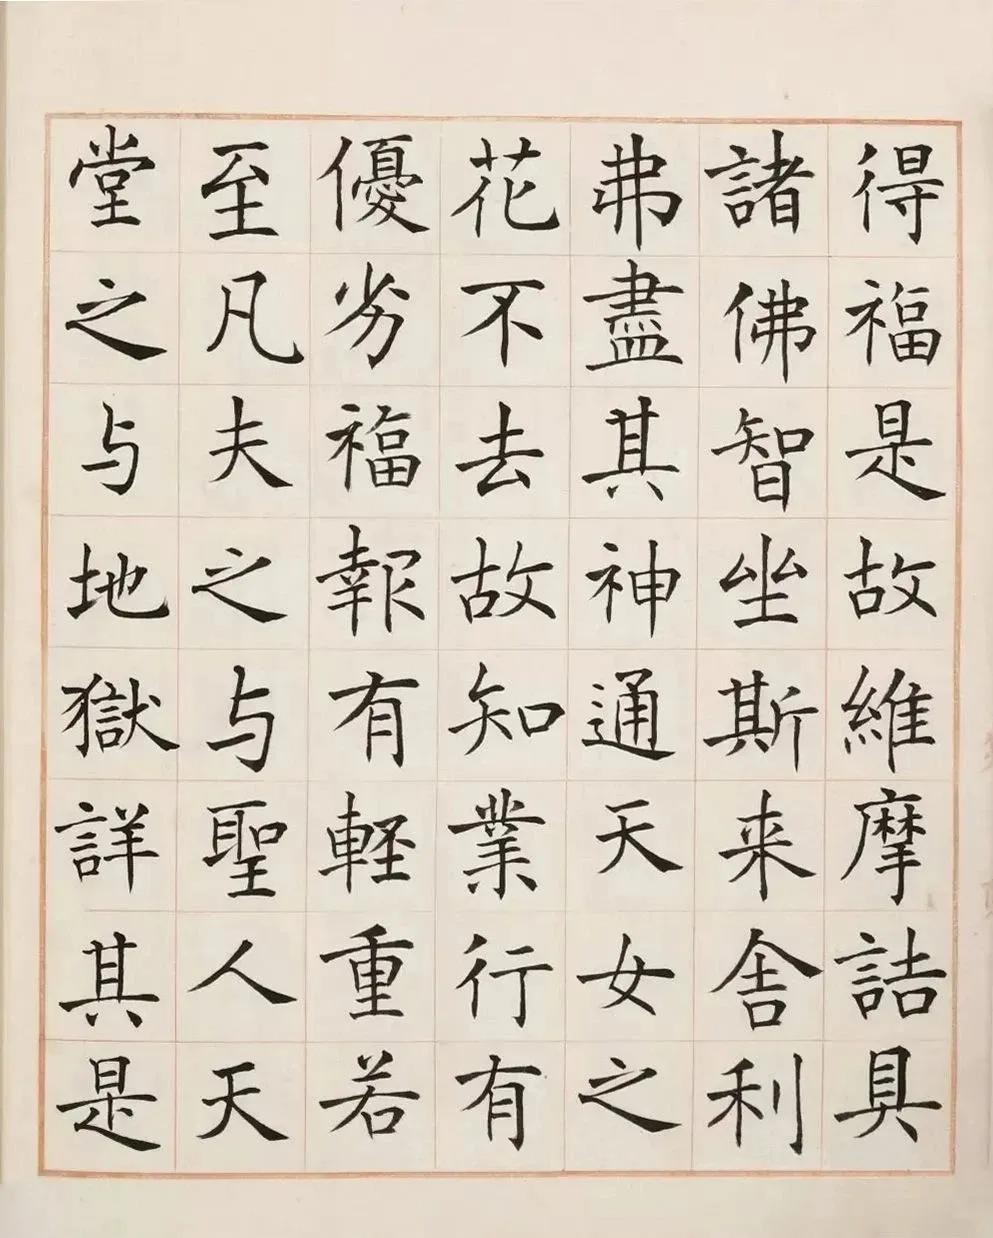 得福是故維摩詰具
諸佛智坐斯来舎利
弗盡其神通天女之
花不去故知業行有
優劣福報有軽重若
至凡夫之与聖人天
堂之与地獄詳其是